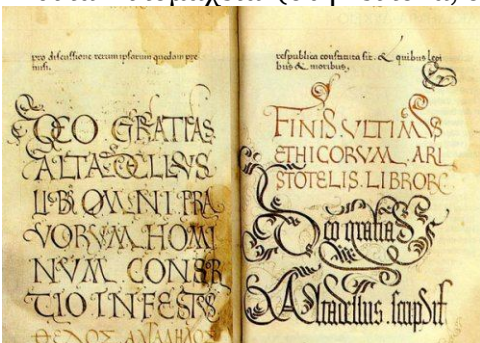 pro discussione rerum ipsarum quedam pre
DEO GRATIAS
ALTADELLVS
LIBI OMNI PRA
VORVM HOMI
NVM CONSOR
TIO INFESTVS
respublica constituta sit. & quibus legi
bus & moribus.
FINIS VLTIMVS
ETHICORVM ARI
STOTELIS LIBRORV
Deo gratias
Altadellus scripsit